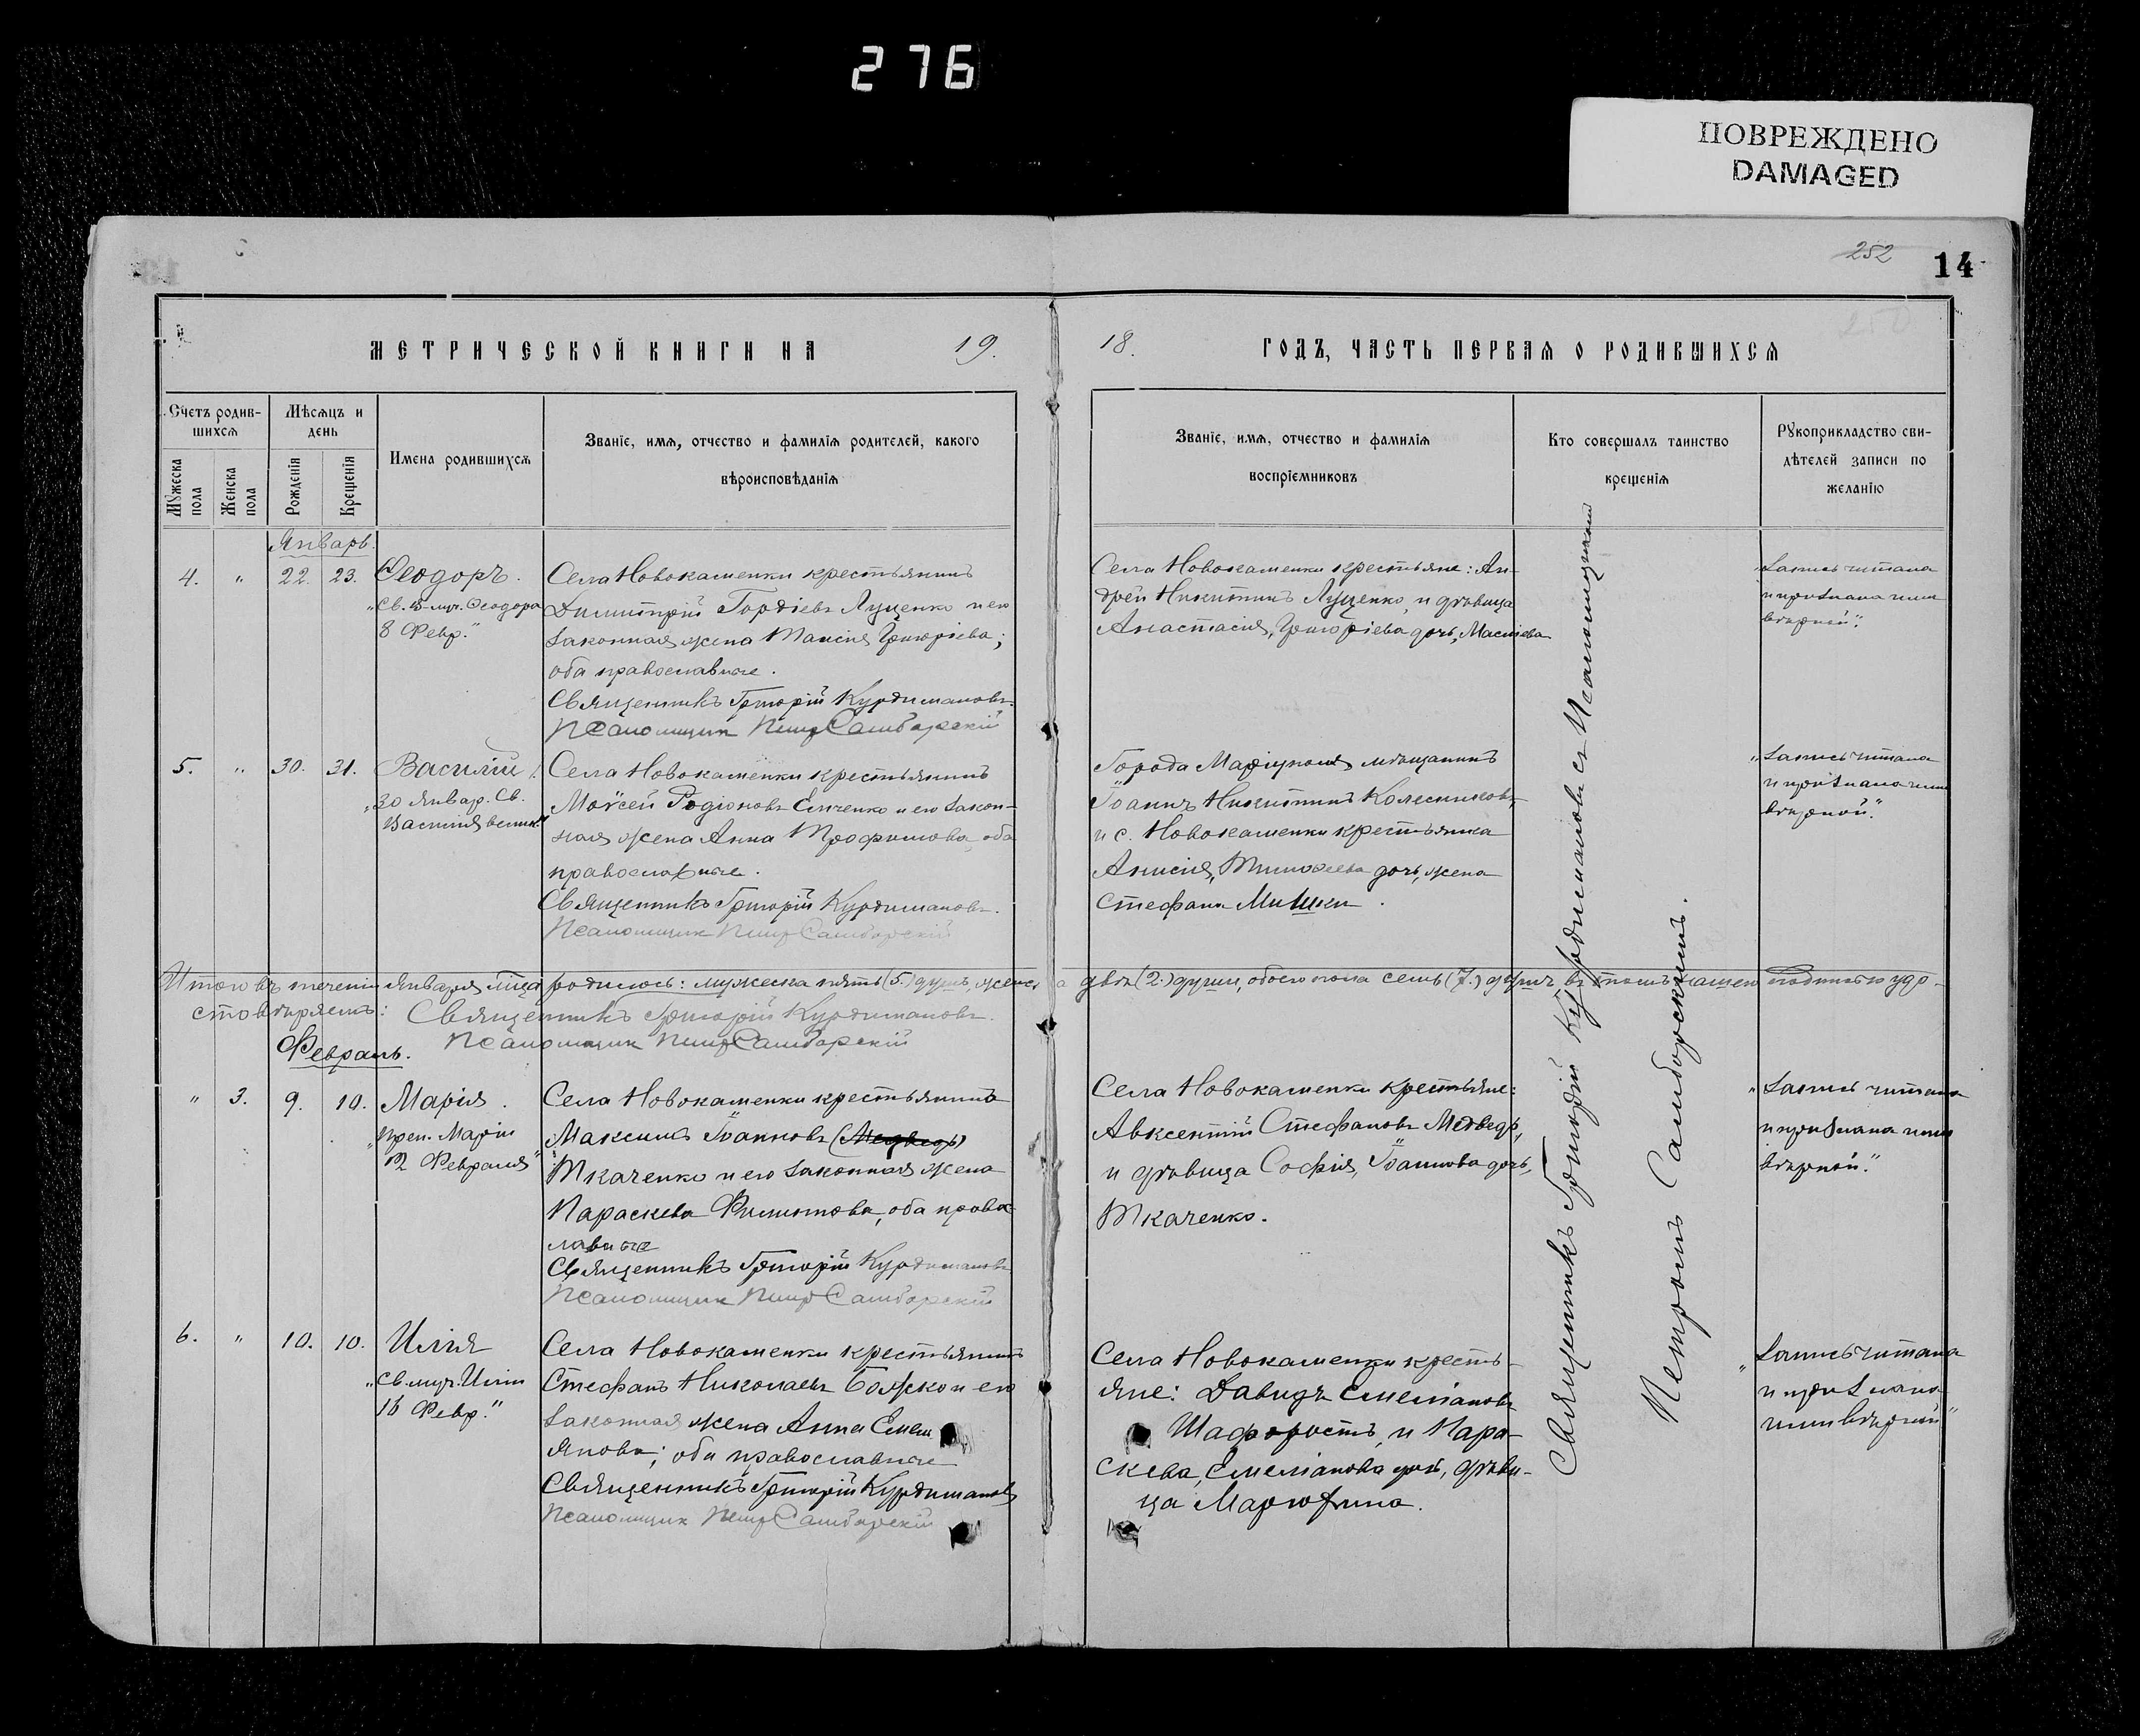 276
ПОВРЕЖДЕНО
DAMAGED
252
14
МЕТРИЧЕСКОЙ КНИГИ НА 19.
18. ГОДЪ, ЧАСТЬ ПЕРВАЯ О РОДИВШИХСЯ
Счетъ родив-
шихся
Мужеска пола
Женска пола
Мѣсяцъ и
день
Рожденія
Крещенія
Имена родившихся
Званіе, имя, отчество и фамилія родителей, какого
вѣроисповѣданія
Званіе, имя, отчество и фамилія
воспріемниковъ
Кто совершалъ таинство
крещенія
Рукоприкладство сви-
дѣтелей записи по
желанію
Январь.
4. " 22. 23. Ѳеодоръ.
"Св. в-муч. Ѳеодора
8 Февр."
Села Новокаменки крестьянинъ
Димитрій Гордіевъ Луценко и его
законная жена Таисія Григоріева;
оба православные.
Священникъ Григорій Курдимановъ.
Псаломщик Петр Самборскій
Села Новокаменки крестьяне: Ан-
дрей Никитинъ Луценко, и дѣвица
Анастасія, Григоріева дочь,
Запись читана
и признана нами
вѣрной".
5. " 30. 31. Василій.
"30 Январ. Св.
Василія велик."
Села Новокаменки крестьянинъ
Моѵсей Родіоновъ Емченко и его закон-
ная жена Анна Трофимова, оба
православные.
Священникъ Григорій Курдимановъ.
Псаломщик Петр Самборскій
Города Маріуполя мѣщанинъ
Іоаннъ Никитинъ Колесниковъ,
и с. Новокаменки крестьянка
Анисія, Тимоѳеева дочь, жена
Стефана Мишки.
"Запись читана
и признана нами
вѣрной."
Итого въ теченіи Января мѣсяца родилось: мужеска пять (5.) душъ, женска двѣ (2.) души, обоего пола семь (7.) душъ, въ томъ нашею подписью удо-
стовѣряемъ: Священникъ Григорій Курдимановъ.
Псаломщик Петр Самборскій
Февраль.
" 3. 9. 10. Марія.
"преп. Маріи
12 Февраля"
Села Новокаменки крестьянинъ
Максимъ Іоанновъ (Медведь)
Ткаченко и его законная жена
Параскева Филиппова, оба право-
лавные
Священникъ Григорій Курдимановъ
Псаломщик Петр Самборскій
Села Новокаменки крестьяне:
Авксентій Стефановъ Медведь,
и дѣвица Софія, Іоаннова дочь,
Ткаченко.
"Запись читана
и признана нами
вѣрной."
6. " 10. 10. Илія
"Св. муч. Иліи
16 Февр."
Села Новокаменки крестьянинъ
Стефанъ Николаевъ Божко и его
законная жена Анна Емел
янова; оба православные
Священникъ Григорій Курдимановъ
Псаломщик Петр Самборскій
Села Новокаменки кресть-
яне: Давидъ Емеліановъ
Шафоростъ, и Пара-
скева, Емеліанова дочь, дѣви-
ца
"Запись читана
и признана
нами вѣрной"
Священникъ Григорій Курдимановъ съ Псаломщикомъ
Петромъ Самборскимъ.